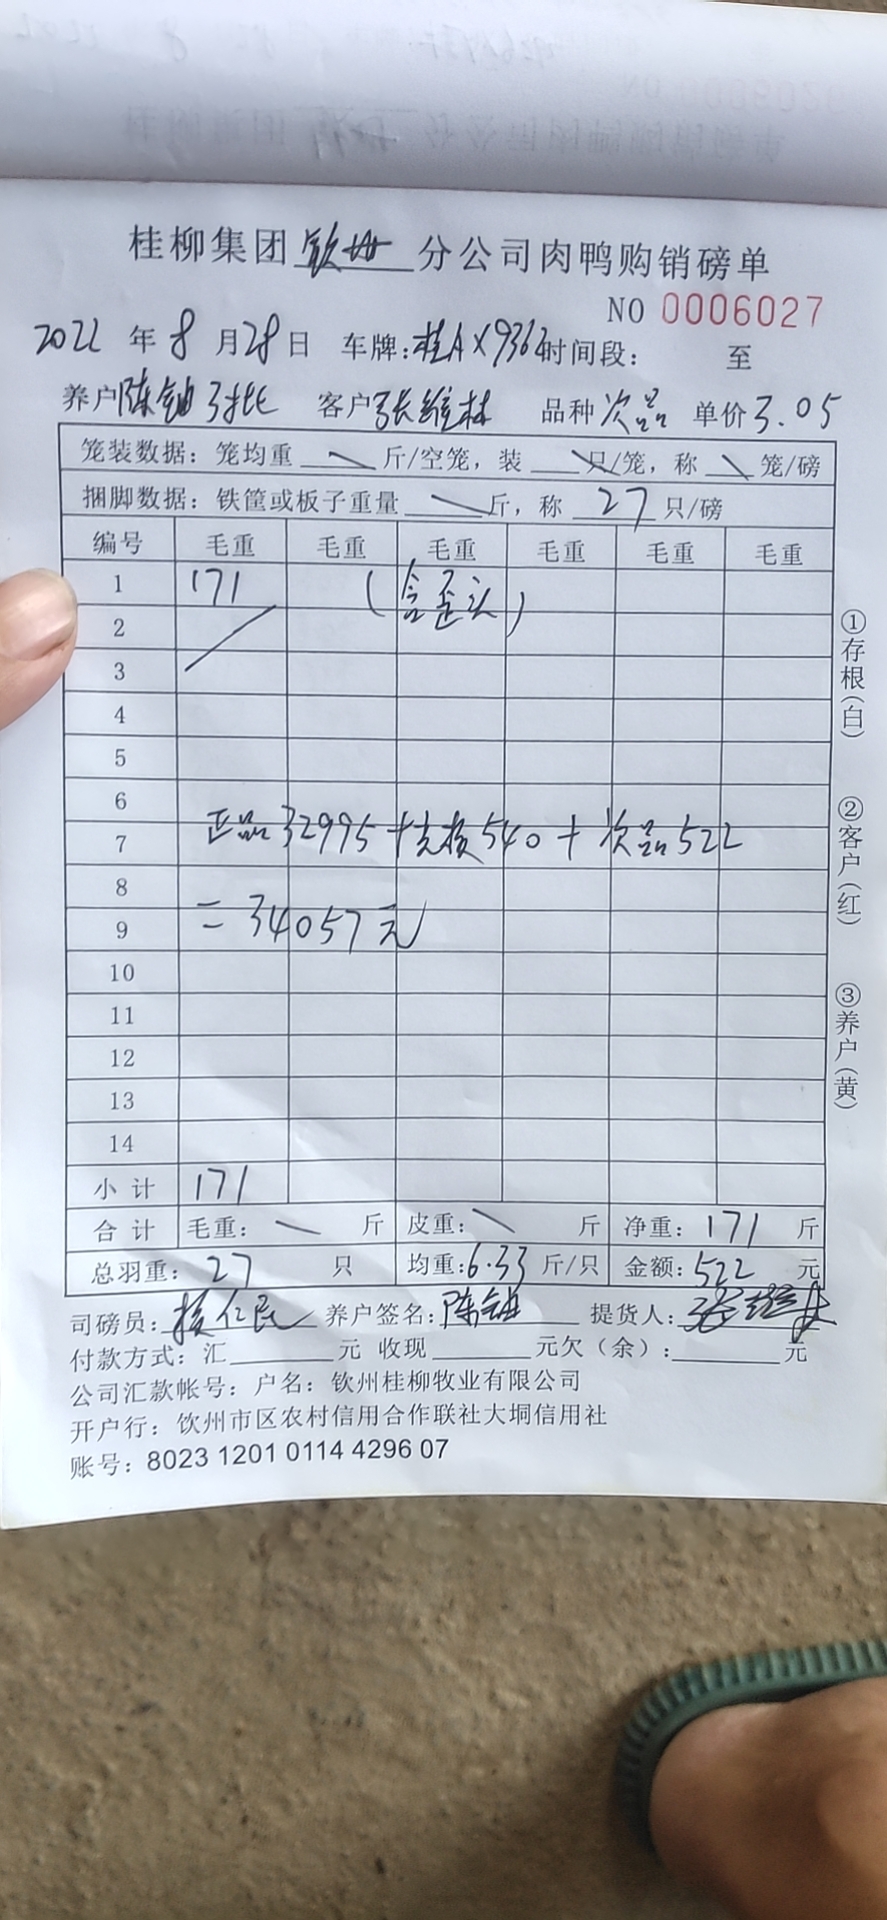 桂柳集团钦州分公司肉鸭购销磅单
NO 0006027
2022年8月28日 车牌:桂AX9362时间段: 至
养户陈 3批 客户张维林 品种次品 单价3.05
笼装数据:笼均重 \ 斤/空笼,装 \ 只/笼,称 \ 笼/磅
捆脚数据:铁筐或板子重量 \ 斤,称 27 只/磅
编号 毛重 毛重 毛重 毛重 毛重 毛重
1 171 (含歪头)
2
3
4
5
6
7 正品32995+ 540+次品522
8
9 =34057元
10
11
12
13
14
小计 171
合计 毛重: \ 斤 皮重: \ 斤 净重: 171 斤
总羽重: 27 只 均重:6.33斤/只 金额:522元
司磅员: 仁民 养户签名:陈 提货人:张维林
付款方式:汇 元 收现 元欠(余): 元
公司汇款帐号:户名:钦州桂柳牧业有限公司
开户行:钦州市区农村信用合作联社大垌信用社
账号:8023 1201 0114 4296 07
①存根(白)
②客户(红)
③养户(黄)